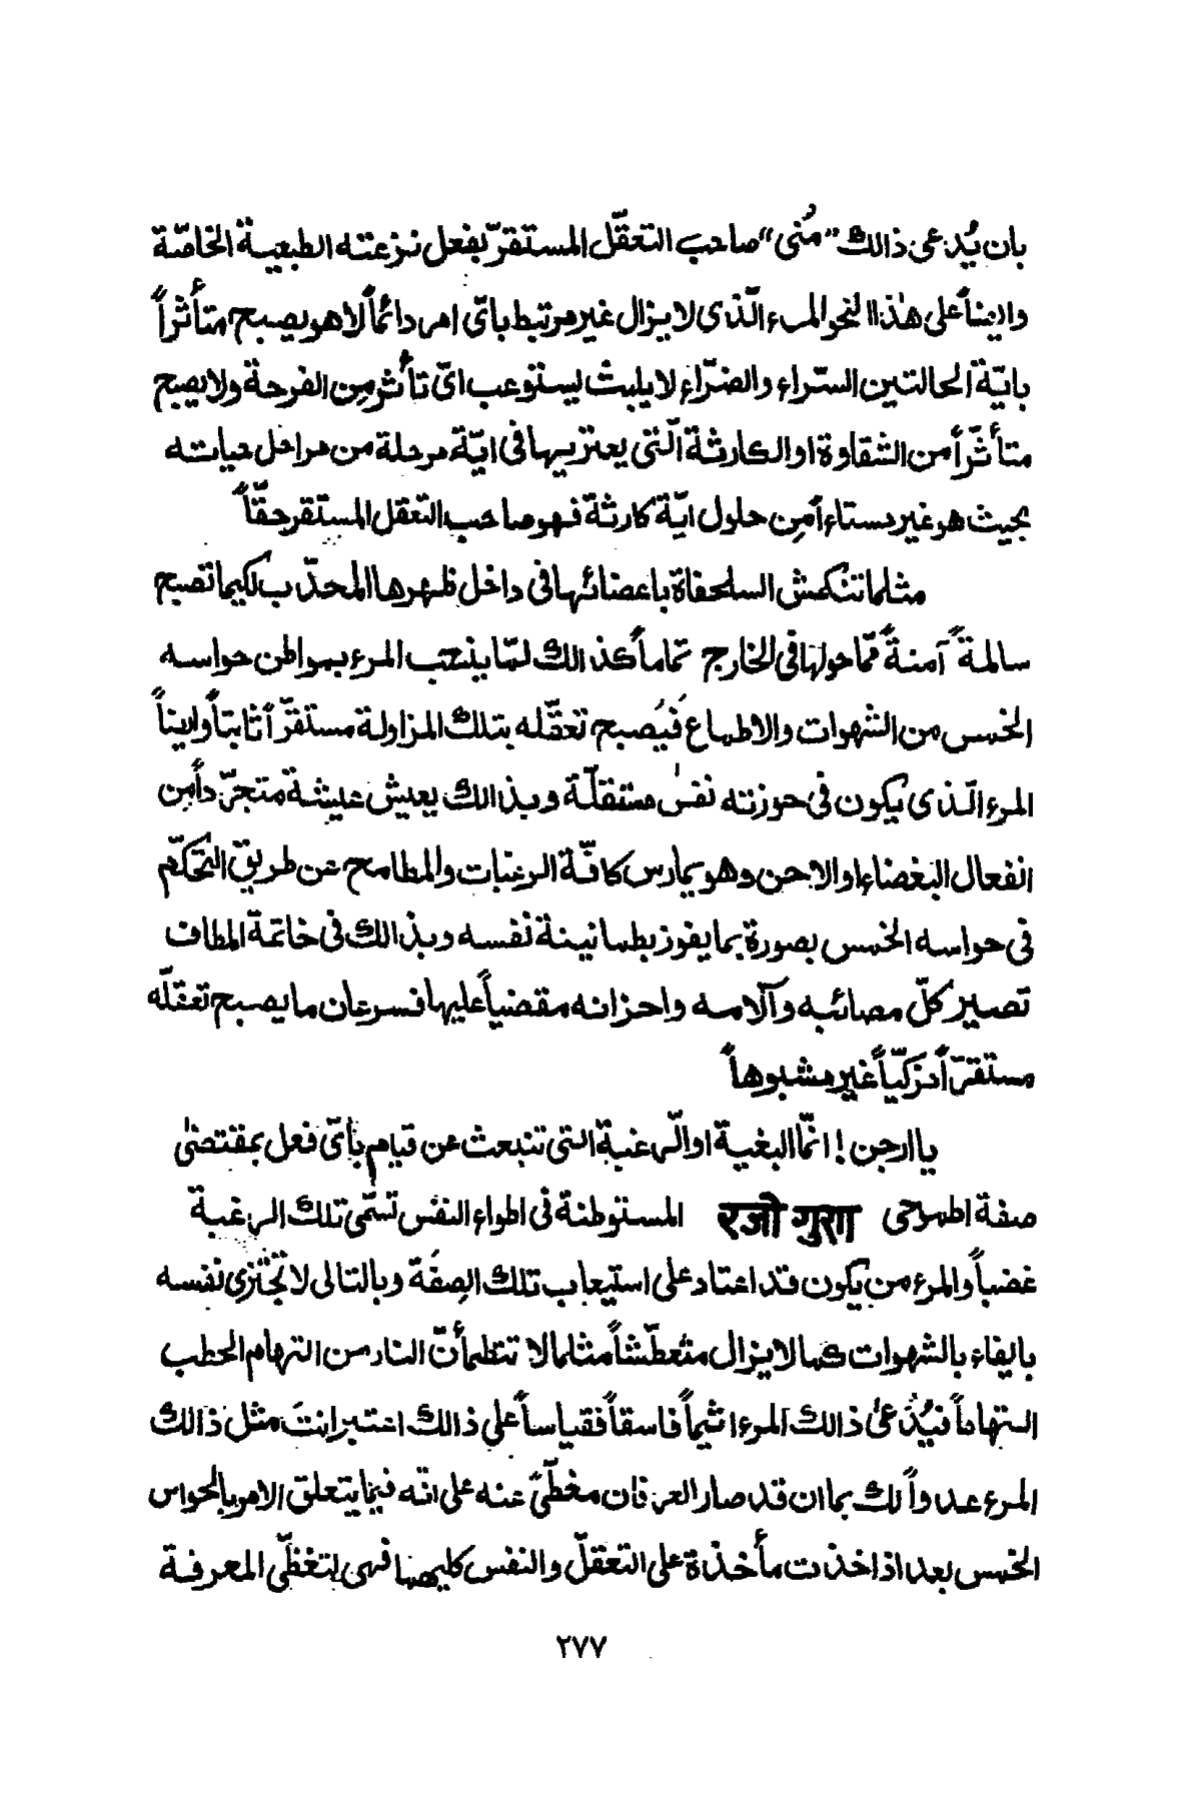 بان يُدعى ذالك "مُنى" صاحب التعقّل المستقرّ بفعل نزعته الطبعية الخاصّة
وايضاً على هٰذا النحو المرء الّذى لا يزال غير مرتبط بأىّ امر دائماً لا هو يصبح متأثراً
بايّة الحالتين السرّاء والضرّاء لا يلبث ليستوعب اىّ تأثر مِن الفرحة ولا يصبح
متأثّراً من الشقاوة او الكارثة الّتى يعتريها فى ايّة مرحلة من مراحل حياته
بحيث هو غير مستاء أمِن حلول ايّة كارثة فهو صاحب التعقل المستقر حقّاً
مثلما تنكمش السلحفاة باعضائها فى داخل ظهرها المحدّب لكيما تصبح
سالمةً آمنةً ممّا حولها فى الخارج تماماً كذالك لمّا ينتحب المرء بمواطن حواسه
الخمس من الشهوات والاطماع فيُصبح تعقّله بتلك المزاولة مستقرّاً ثابتاً وايضاً
المرء الّذى يكون فى حوزته نفسٌ مستقلّة وبذالك يعيش عيشة متجرّداً من
انفعال البغضاء او الاحن وهو يمارس كافّة الرغبات والمطامح عن طريق التحكّم
فى حواسه الخمس بصورة بما يفوز بطمانينة نفسه وبذالك فى خاتمة المطاف
تصير كلّ مصائبه وآلامه واحزانه مقضياً عليها فسرعان ما يصبح تعقلّه
مستقرّاً زكيّاً غير مشبوهاً
يا ارجن ! انمّا البغية او الّرغبة التى تنبعث عن قيام بأىّ فعل بمقتضىٰ
صفة اطروحى रजो गुण المستوطنة فى اطواء النفس تسمّى تلك الرغبة
غضباً والمرء من يكون قد اعتاد على استيعاب تلك الصِفة وبالتالى لا تجتزى نفسه
بايفاء بالشهوات كما لا يزال متعطّشاً مثلما لا تتظمأنّ النار من التهام الحطب
التهاماً فيُدْعىٰ ذالك المرء اثيماً فاسقاً فقياساً على ذالك اعتبر انتَ مثل ذالك
المرء عدواً لك بما ان قد صار العرفان مغطّىً عنه على انّه فيما يتعلق الامر بالحواس
الخمس بعد اذا اخذت مأخذة على التعقلّ والنفس كليهما فهى لتغظّى المعرفة
٢٧٧